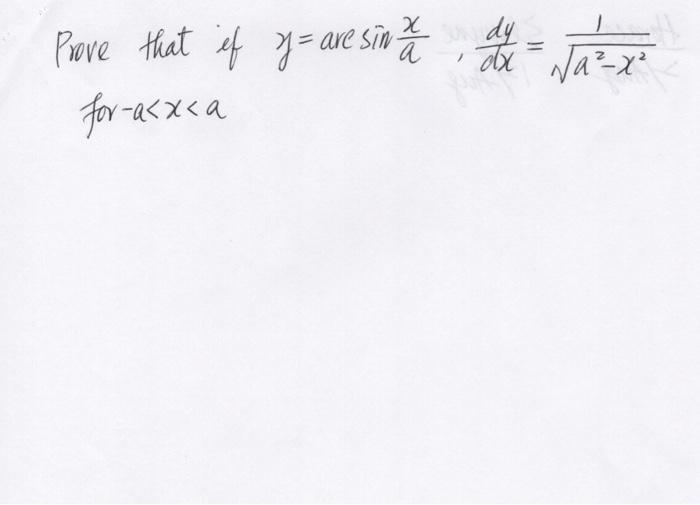 Prove that if y = arc sin x/a , dy/dx = 1/√(a²-x²)
for -a<x<a